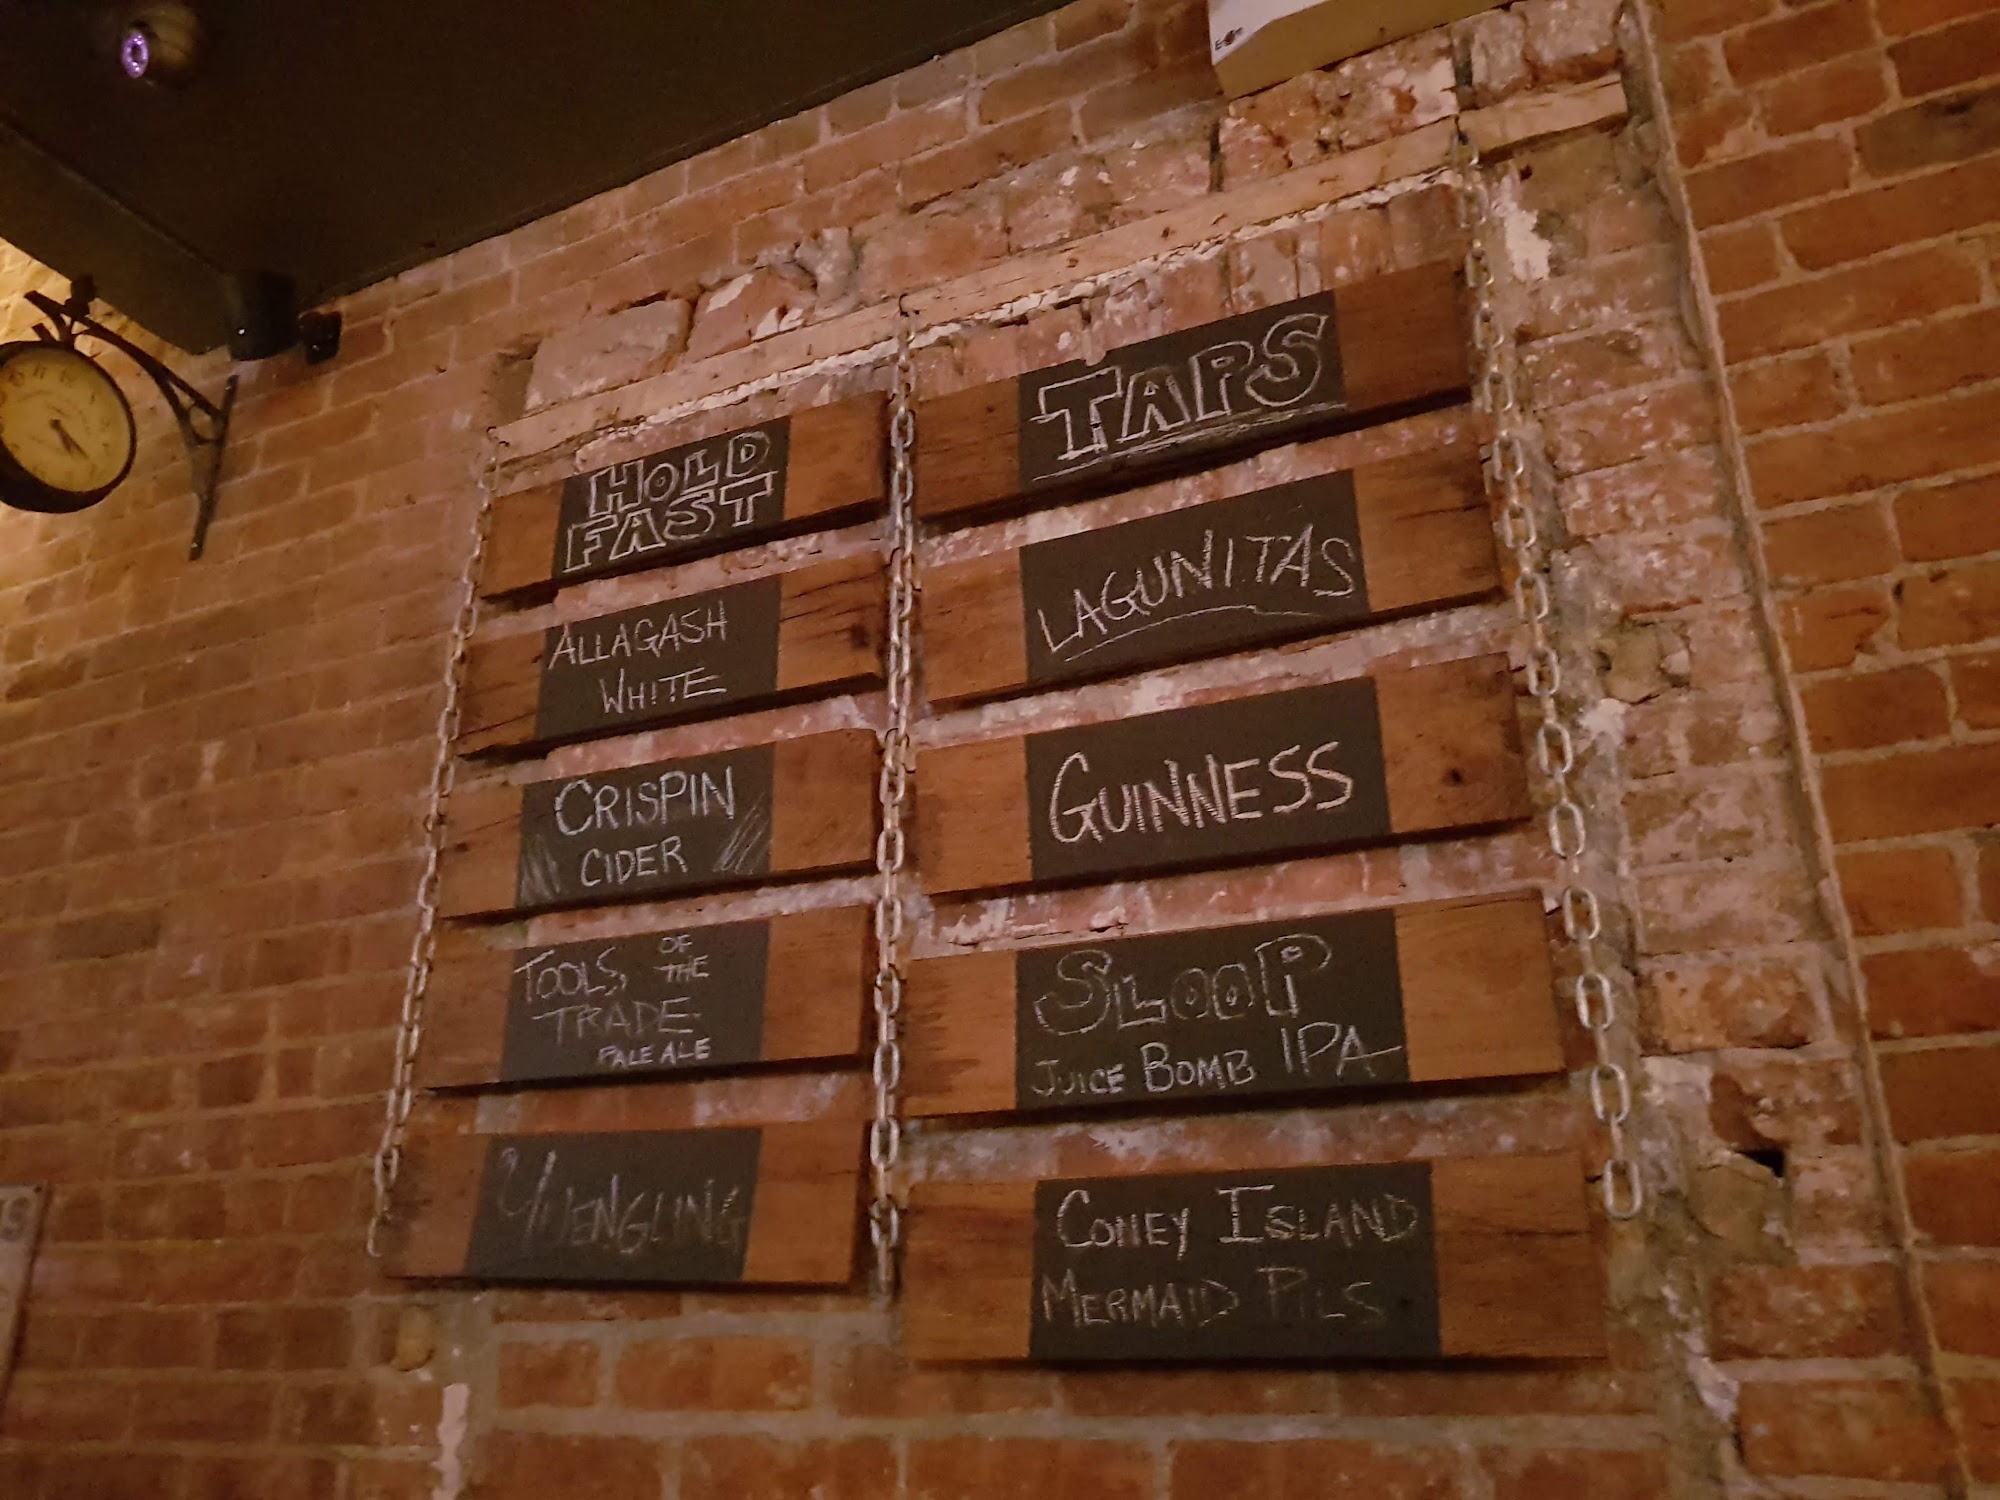 HOLD
FAST
ALLAGASH
WHITE
CRISPIN
CIDER
TOOLS OF THE
TRADE
PALE ALE
YUENGLING
TAPS
LAGUNITAS
GUINNESS
SLOOP
JUICE BOMB IPA
CONEY ISLAND
MERMAID PILS